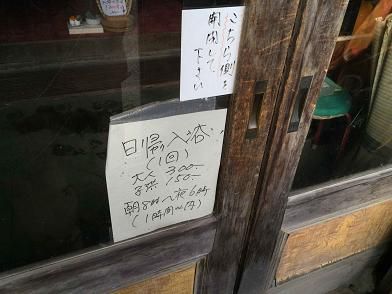 こちら側を
開閉して
下さい
日帰入浴
(1回)
大人 300-
子供 150-
朝8時〜夜6時
(1時間〜内)